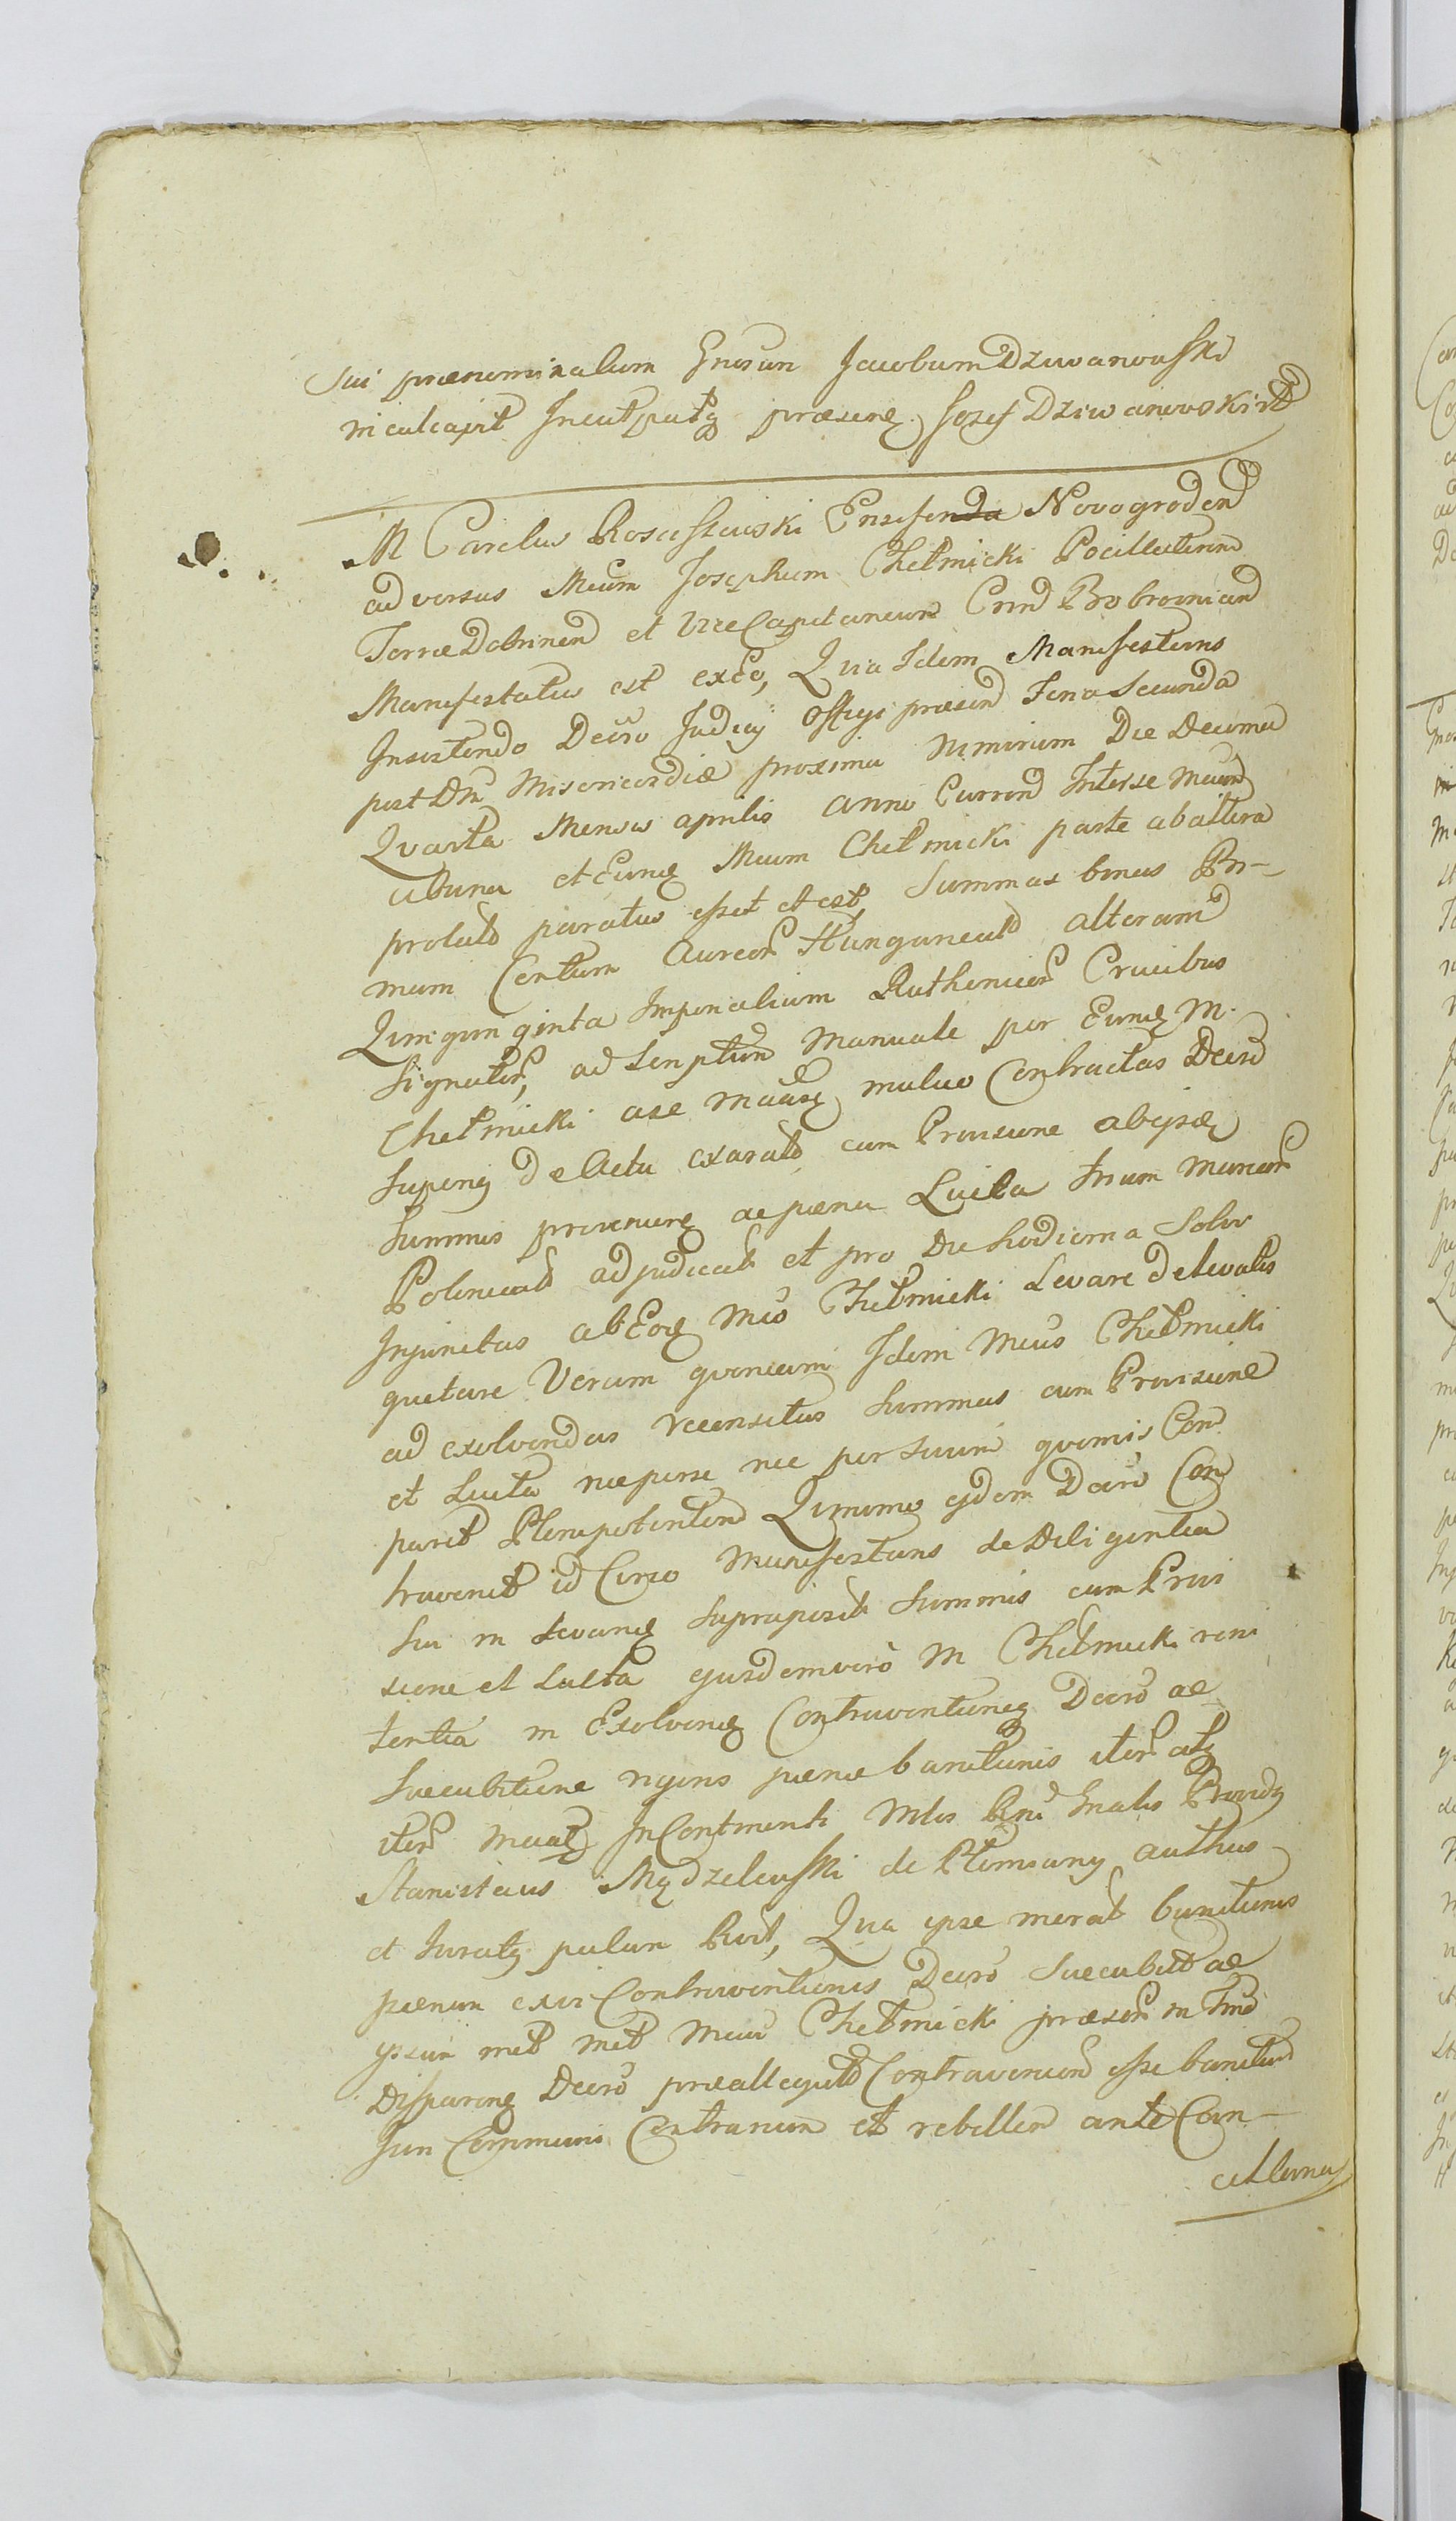 sui praenominalum Gnosun Jacobum Dziwanowsski
inculcavit Incutputq praesenq Jozef Dziwanowski
M Carolus Rosciszewski Ensifer Novogroden
adversus Mcum Josephum Chełmicki Pocillatorem
Terrae Dobrinen et ViceCapitaneum Crim Bobrownicen
Manifestatus est exeo, Quia Idem Manifestans
Insistendo Decro Judicy Officy praesen Feria Secunda
post Dm Misericordiae proxima nimirum Die Decima
Quarta Mensis aprilis anni Curren Interse Mcum
ab una et Eunq Mcum Chełmicki parte ab altera
prolato paratus esset et est, Summas binas Pri-
mam Centum Aureor Hungarical alteram
Quinquaginta Imperialium Ruthenicor Crucibus
Signator, ad Scriptum Manuale per Eunq M.
Chełmicki a se mutuo Contractas Decro
Superinq de Actu exarato, cum Provisione ab ipsis
Summis provenienq ac paena Lucta trium Marcar
Polonical adjudicat et pro Die hodierna Solvi
Injunctas ab Eoq Mco Chełmicki Levare de levatis
quietare Verum quoniam Idem Mcus Chełmicki
ad exolvendas recensitas Summas cum Provisione
et Lucta nec per se nec per Suum quemvis Com
paruit Plenipotenten Quinimo ejdem Decro Con
travenit id Circo Manifestans de Diligentia
Sui in Levanq Supraposit Summis cum Provi
sione et Lucta ejusdem vero M Chełmicki reni
tentia in Exolvenq Contraventioneq Decro ac
Succubitione rigoris paenae banitionis iter atq
iter Incontinenti Mtis Rni Gnalis Providq
Stanislaus Mędzelewski de Płomiany authus
et Juratq palam Rvit, Quia ipse merat banitionis
paenam exvi Contraventionis Decro Succubit ac
ipsum met Mcum Chełmicki praesen in Tmo
Dispareng Decro praeallegato Contravenien esse banitum
Juri Communi Contrarium et rebellem ante Can-
cellaria